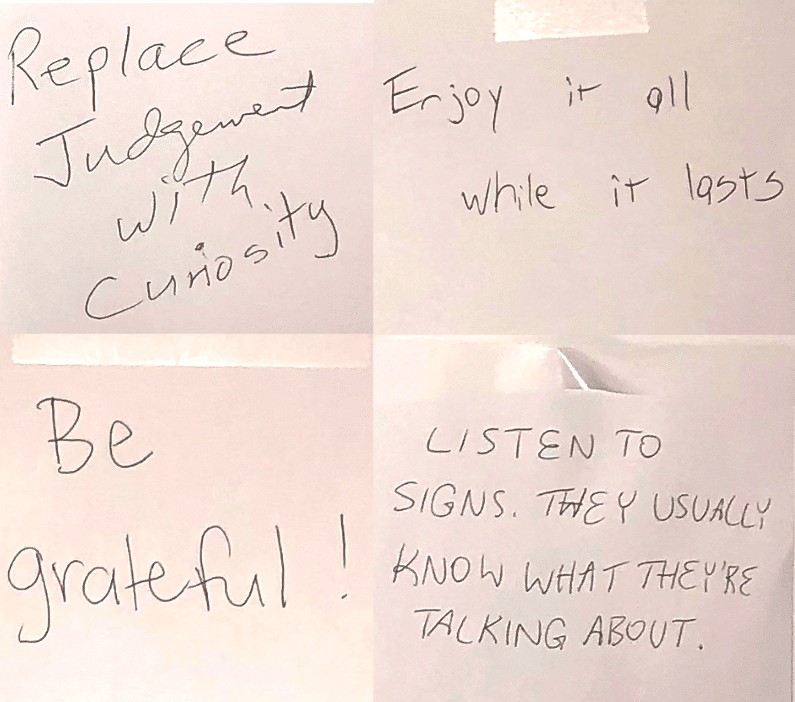 Replace
Judgement
with
Curiosity
Enjoy it all
while it lasts
Be
grateful!
LISTEN TO
SIGNS. THEY USUALLY
KNOW WHAT THEY'RE
TALKING ABOUT.